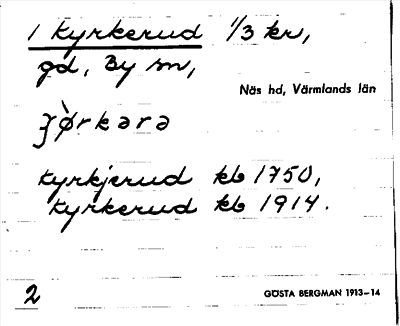 1 Kyrkerud 1/3 kr,
gd, By sn,
Näs hd, Värmlands län
ʒø̀rkərə
Kyrkjerud kb 1750,
Kyrkerud kb 1914.
2
GÖSTA BERGMAN 1913–14